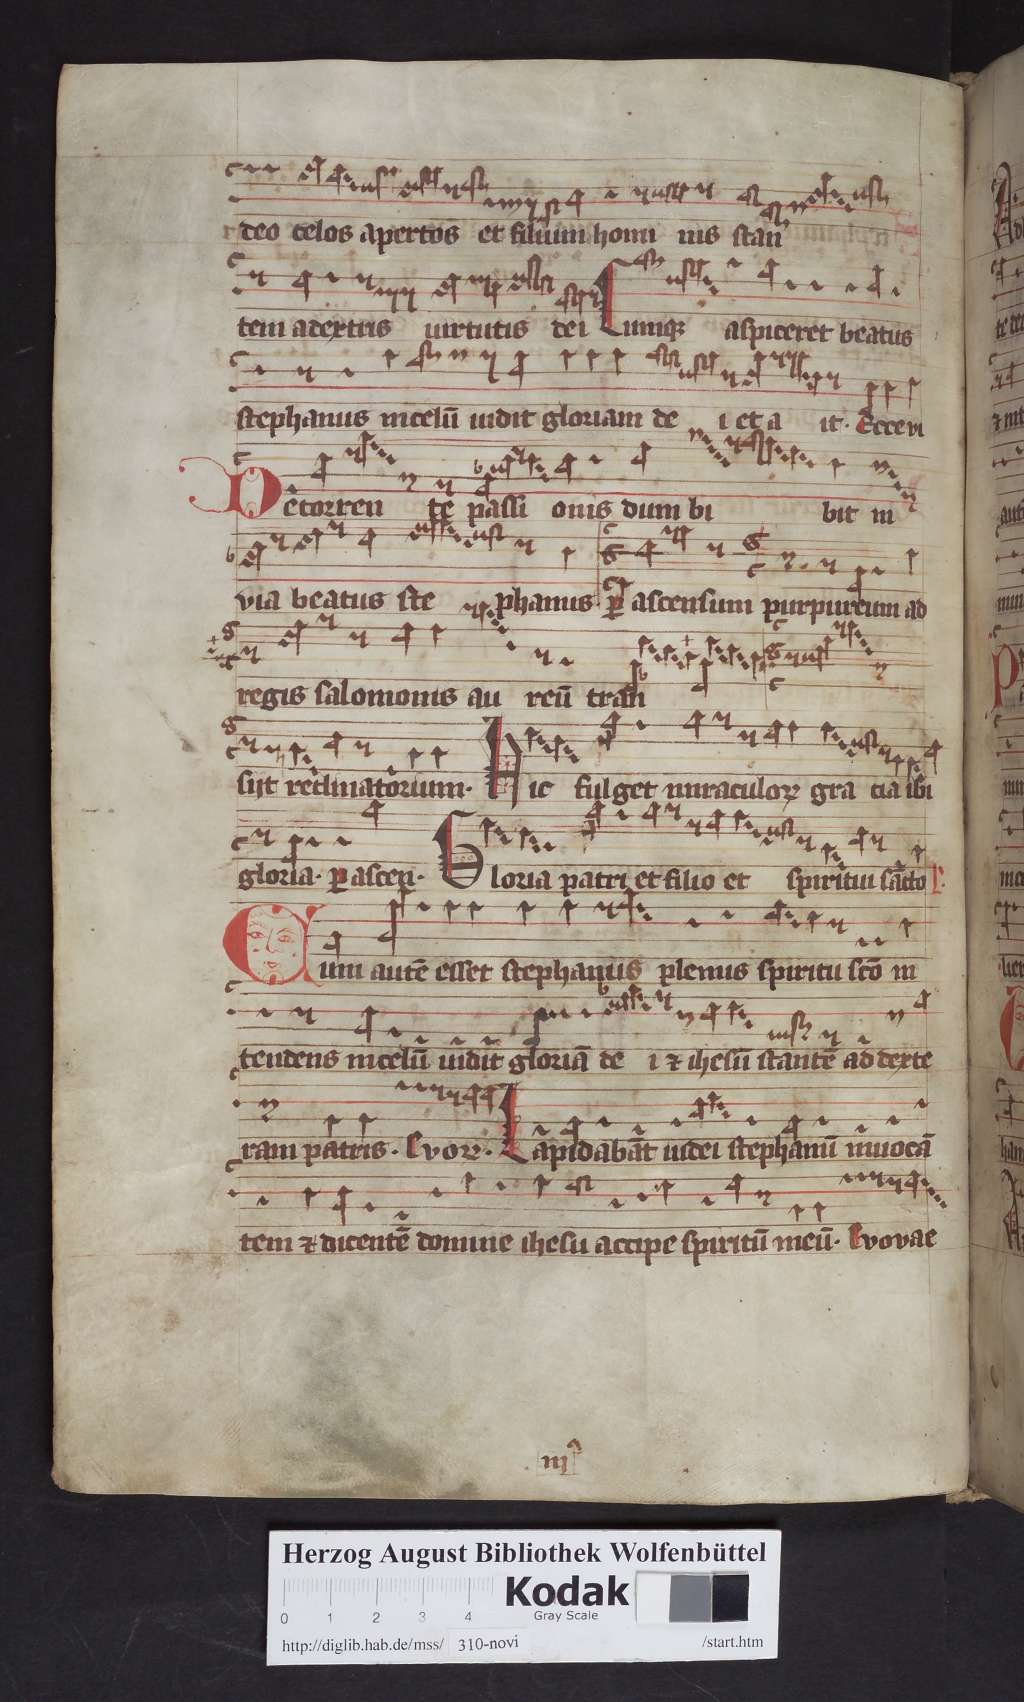 deo celos apertos et filium homi nis stan
tem adextris uirtutis dei Cumq; aspiceret beatus
stephanus incelū uidit gloriam de i et a it. Ecce vi
De torren te passi onis dum bi bit in
via beatus ste phanus. ꝑ ascensum purpureum ad
regis salomonis au reū tran
siit reclinatorium. Hic fulget miraculoꝝ gra cia ibi
gloria. ꝑ ascen. Gloria patri et filio et spiritui sācto
Cum autē esset stephanus plenus spiritu scō in
tendens incelū uidit gloriā de i ⁊ ihesū stantē ad dexte
ram patris. Evov. Lapidabāt iudei stephanū inuocā
tem ⁊ dicentē domine ihesu accipe spiritū meū. Evovae
iii
Herzog August Bibliothek Wolfenbüttel
Kodak
Gray Scale
0 1 2 3 4
http://diglib.hab.de/mss/ 310-novi /start.htm